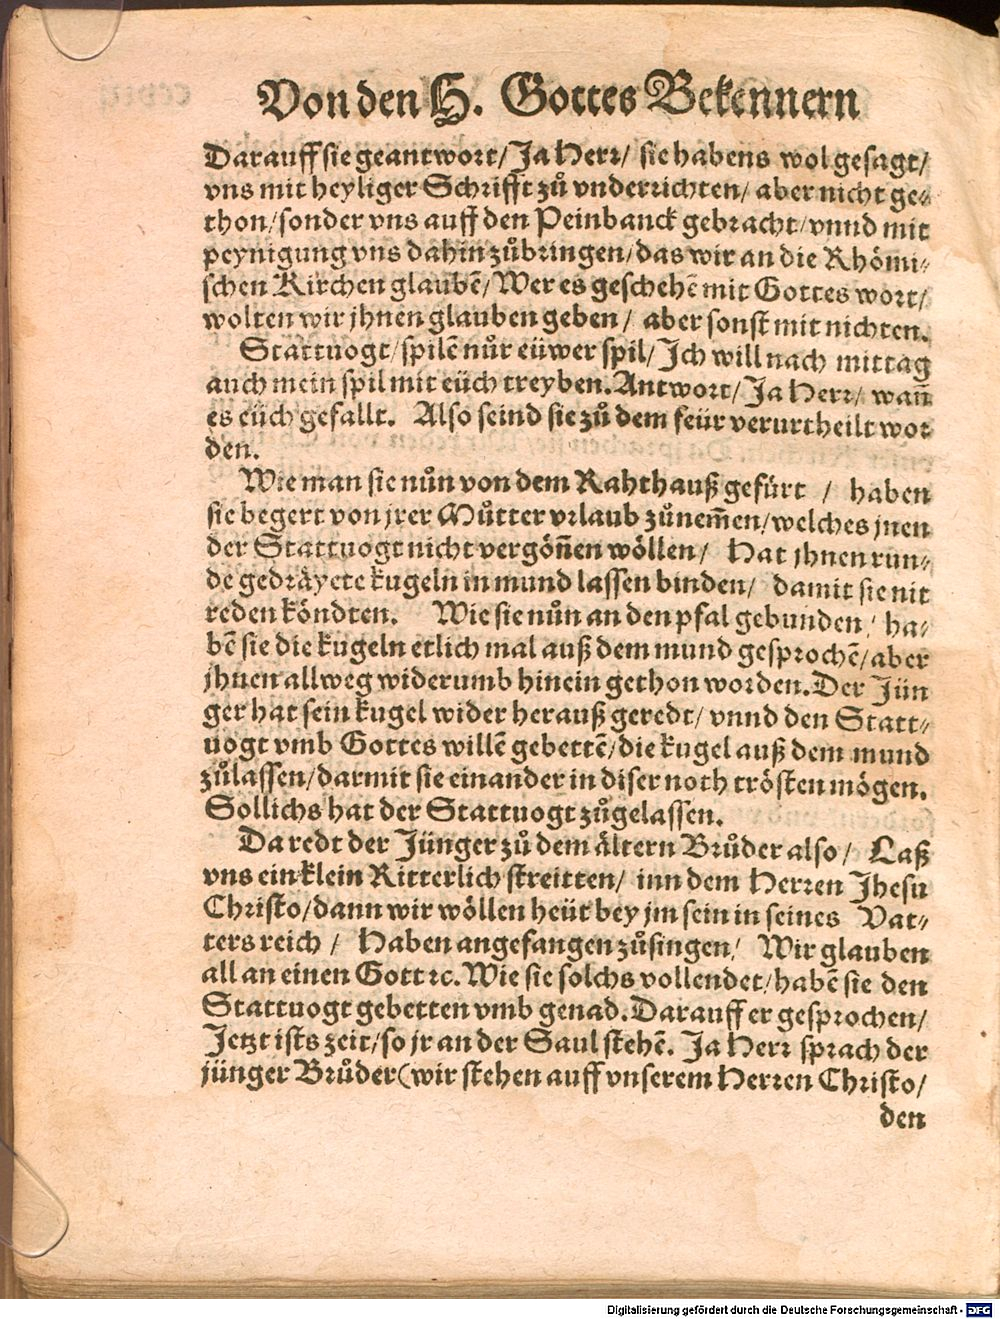 Von den H. Gottes Bekennern
Darauff sie geantwort/ Ja Herr/ sie habens wol gesagt/
vns mit heyliger Schrifft zů vnderrichten/ aber nicht ge⸗
thon/ sonder vns auff den Peinbanck gebracht/ vnnd mit
peynigung vns dahin zůbringen/ das wir an die Rhömi⸗
schen Kirchen glaubẽ/ Wer es geschehẽ mit Gottes wort/
wolten wir jhnen glauben geben/ aber sonst mit nichten.
Stattuogt/ spilẽ nůr eüwer spil/ Ich will nach mittag
auch mein spil mit eüch treyben. Antwort/ Ja Herr/ wañ
es eüch gefallt. Also seind sie zů dem feür verurtheilt wor
den.
Wie man sie nůn von dem Rahthauß gefürt / haben
sie begert von jrer Můtter vrlaub zůnem̃en/ welches jnen
der Stattuogt nicht vergöñen wöllen/ Hat jhnen run⸗
de gedräyete kugeln in mund lassen binden/ damit sie nit
reden köndten. Wie sie nůn an den pfal gebunden/ ha⸗
bẽ sie die kugeln etlich mal auß dem mund gesprochẽ/ aber
jhnen allweg widerumb hinein gethon worden. Der Jün
ger hat sein kugel wider herauß geredt/ vnnd den Statt⸗
uogt vmb Gottes willẽ gebettẽ/ die kugel auß dem mund
zůlassen/ darmit sie einander in diser noth trösten mögen.
Sollichs hat der Stattuogt zůgelassen.
Da redt der Jünger zů dem ältern Brůder also/ Laß
vns ein klein Ritterlich streitten/ inn dem Herren Jhesu
Christo/ dann wir wöllen heüt bey jm sein in seines Vat⸗
ters reich / Haben angefangen zůsingen/ Wir glauben
all an einen Gott ꝛc. Wie sie solchs vollendet/ habẽ sie den
Stattuogt gebetten vmb genad. Darauff er gesprochen/
Jetzt ists zeit/ so jr an der Saul stehẽ. Ja Herr sprach der
jünger Brůder (wir stehen auff vnserem Herren Christo/
den
Digitalisierung gefördert durch die Deutsche Forschungsgemeinschaft - DFG